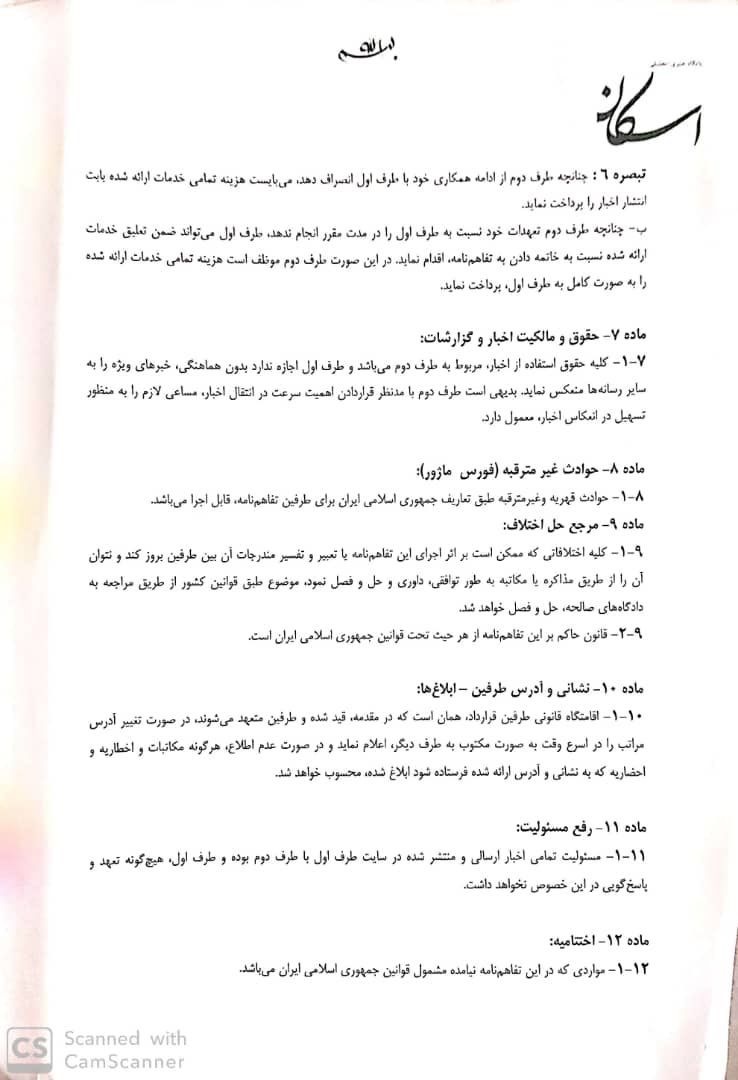 بسم الله
اسکان
تبصره ۶: چنانچه طرف دوم از ادامه همکاری خود با طرف اول انصراف دهد، می‌بایست هزینه تمامی خدمات ارائه شده بابت
انتشار اخبار را پرداخت نماید.
ب- چنانچه طرف دوم تعهدات خود نسبت به طرف اول را در مدت مقرر انجام ندهد، طرف اول می‌تواند ضمن تعلیق خدمات
ارائه شده نسبت به خاتمه دادن به تفاهم‌نامه، اقدام نماید. در این صورت طرف دوم موظف است هزینه تمامی خدمات ارائه شده
را به صورت کامل به طرف اول، پرداخت نماید.
ماده ۷- حقوق و مالکیت اخبار و گزارشات:
۷-۱- کلیه حقوق استفاده از اخبار، مربوط به طرف دوم می‌باشد و طرف اول اجازه ندارد بدون هماهنگی، خبرهای ویژه را به
سایر رسانه‌ها منعکس نماید. بدیهی است طرف دوم با مدنظر قراردادن اهمیت سرعت در انتقال اخبار، مساعی لازم را به منظور
تسهیل در انعکاس اخبار، معمول دارد.
ماده ۸- حوادث غیر مترقبه (فورس ماژور):
۸-۱- حوادث قهریه وغیرمترقبه طبق تعاریف جمهوری اسلامی ایران برای طرفین تفاهم‌نامه، قابل اجرا می‌باشد.
ماده ۹- مرجع حل اختلاف:
۹-۱- کلیه اختلافاتی که ممکن است بر اثر اجرای این تفاهم‌نامه یا تعبیر و تفسیر مندرجات آن بین طرفین بروز کند و نتوان
آن را از طریق مذاکره یا مکاتبه به طور توافقی، داوری و حل و فصل نمود، موضوع طبق قوانین کشور از طریق مراجعه به
دادگاه‌های صالحه، حل و فصل خواهد شد.
۹-۲- قانون حاکم بر این تفاهم‌نامه از هر حیث تحت قوانین جمهوری اسلامی ایران است.
ماده ۱۰- نشانی و آدرس طرفین – ابلاغ‌ها:
۱۰-۱- اقامتگاه قانونی طرفین قرارداد، همان است که در مقدمه، قید شده و طرفین متعهد می‌شوند، در صورت تغییر آدرس
مراتب را در اسرع وقت به صورت مکتوب به طرف دیگر، اعلام نماید و در صورت عدم اطلاع، هرگونه مکاتبات و اخطاریه و
احضاریه که به نشانی و آدرس ارائه شده فرستاده شود ابلاغ شده، محسوب خواهد شد.
ماده ۱۱- رفع مسئولیت:
۱۱-۱- مسئولیت تمامی اخبار ارسالی و منتشر شده در سایت طرف اول با طرف دوم بوده و طرف اول، هیچ‌گونه تعهد و
پاسخ‌گویی در این خصوص نخواهد داشت.
ماده ۱۲- اختتامیه:
۱۲-۱- مواردی که در این تفاهم‌نامه نیامده مشمول قوانین جمهوری اسلامی ایران می‌باشد.
CS Scanned with
CamScanner